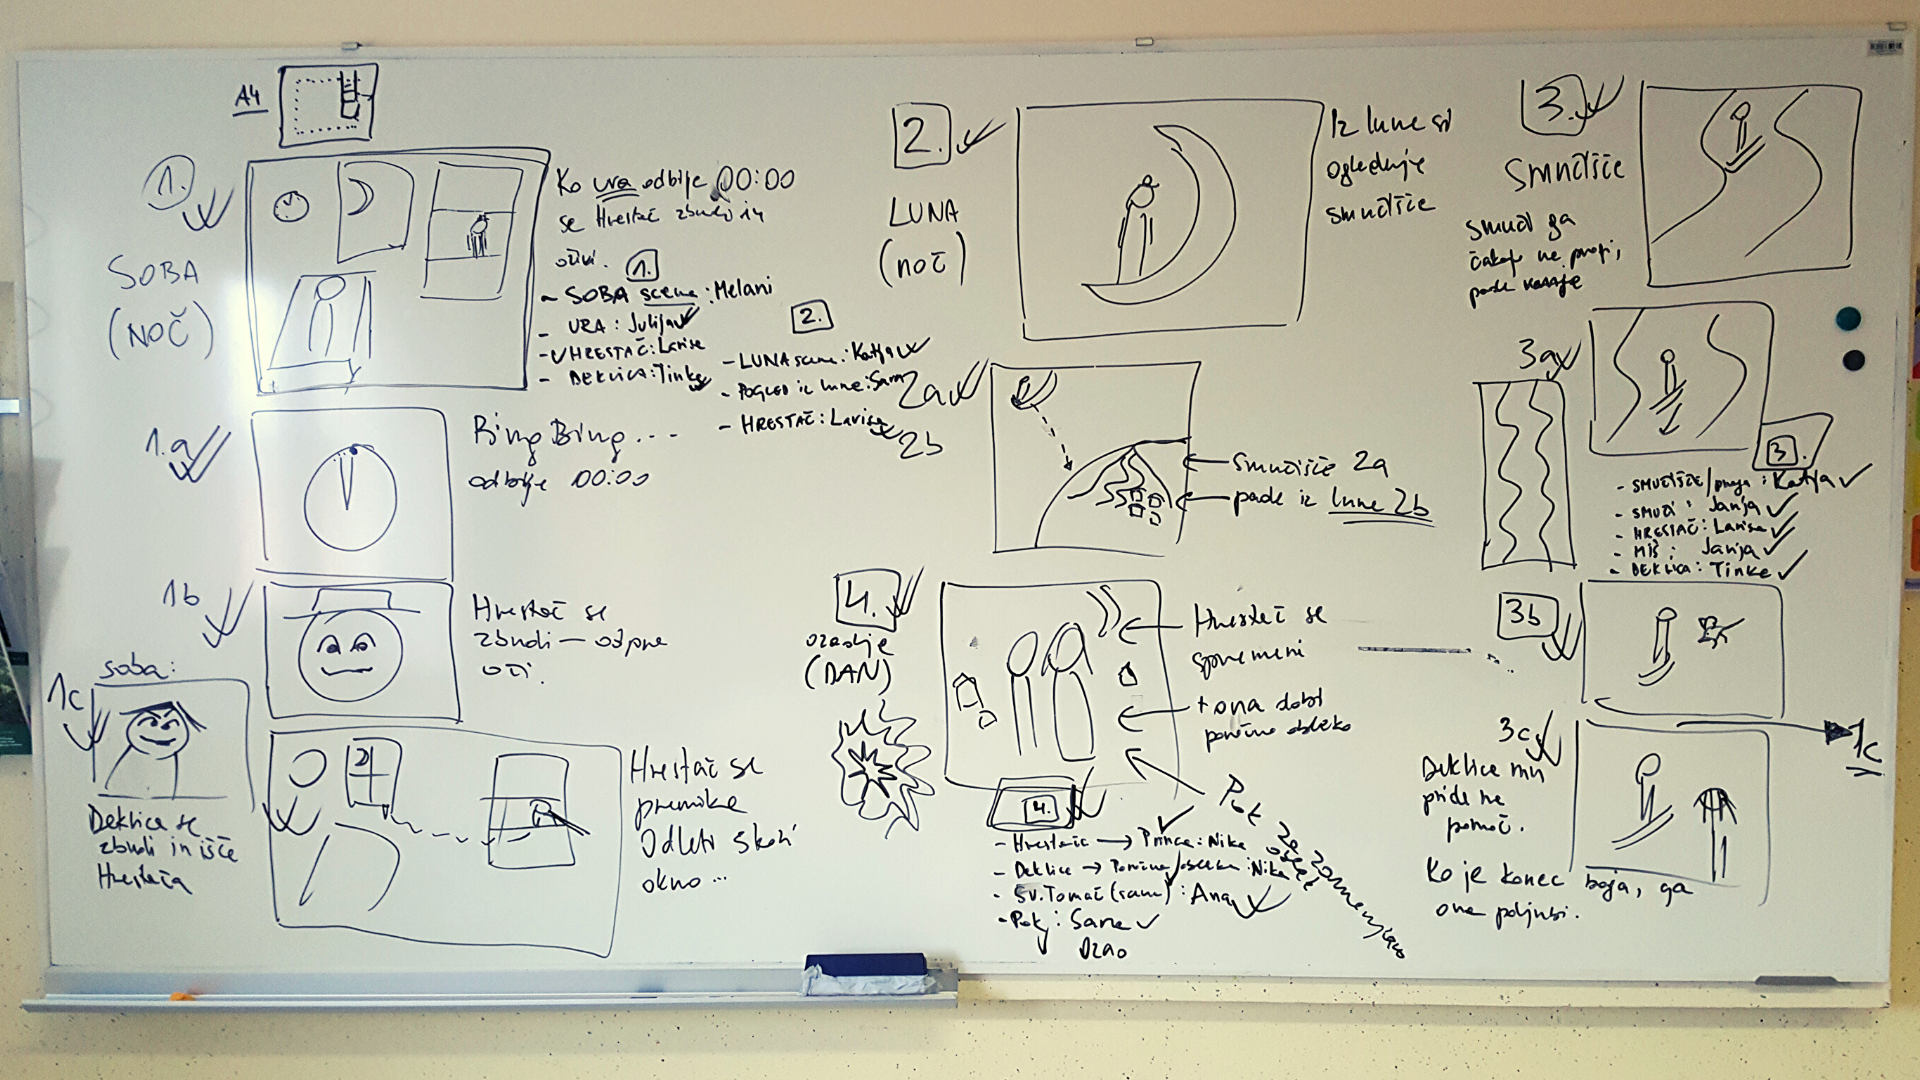 A4
1.
SOBA
(NOČ)
Ko ura odbije 00:00
se Hrestač zbudi in
oživi.
1.
- SOBA scena: Melani
- URA: Julija
- HRESTAČ: Larisa
- DEKLICA: Tinka
2.
- LUNA scena: Katja
- POGLED iz lune: Sara
- HRESTAČ: Larisa
1.a
Bing Bing...
odbije 00:00
1b
Hrestač se
zbudi - odpre
oči.
1c
soba:
Deklica se
zbudi in išče
Hrestača
Hrestač se
premakne
Odleti skozi
okno...
2.
LUNA
(NOČ)
Iz lune si
ogleduje
smučišče
2a
2b
smučišče 2a
pade iz lune 2b
3.
SMUČIŠČE
smuči ga
čakajo na progi,
3a
3.
- SMUČIŠČE/proga: Katja
- SMUČI: Janja
- HRESTAČ: Larisa
- MIŠ: Janja
- DEKLICA: Tinka
3b
3c
1c
Deklica mu
pride na
pomoč.
Ko je konec boja, ga
ona poljubi.
4.
ozadje
(DAN)
Hrestač se
spremeni
+ ona dobi
poročno obleko
4.
- Hrestač → Princa: Nika
- Deklica → Poročna obleka: Nika
- Sv. Tomaž (sam): Ana
- Pokj: Sara
Ozao